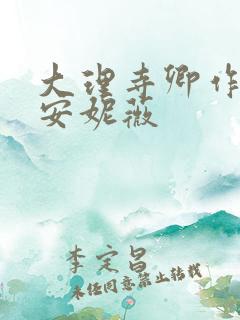 大理寺卿作
安妮薇
李定昌
未经同意禁止转载